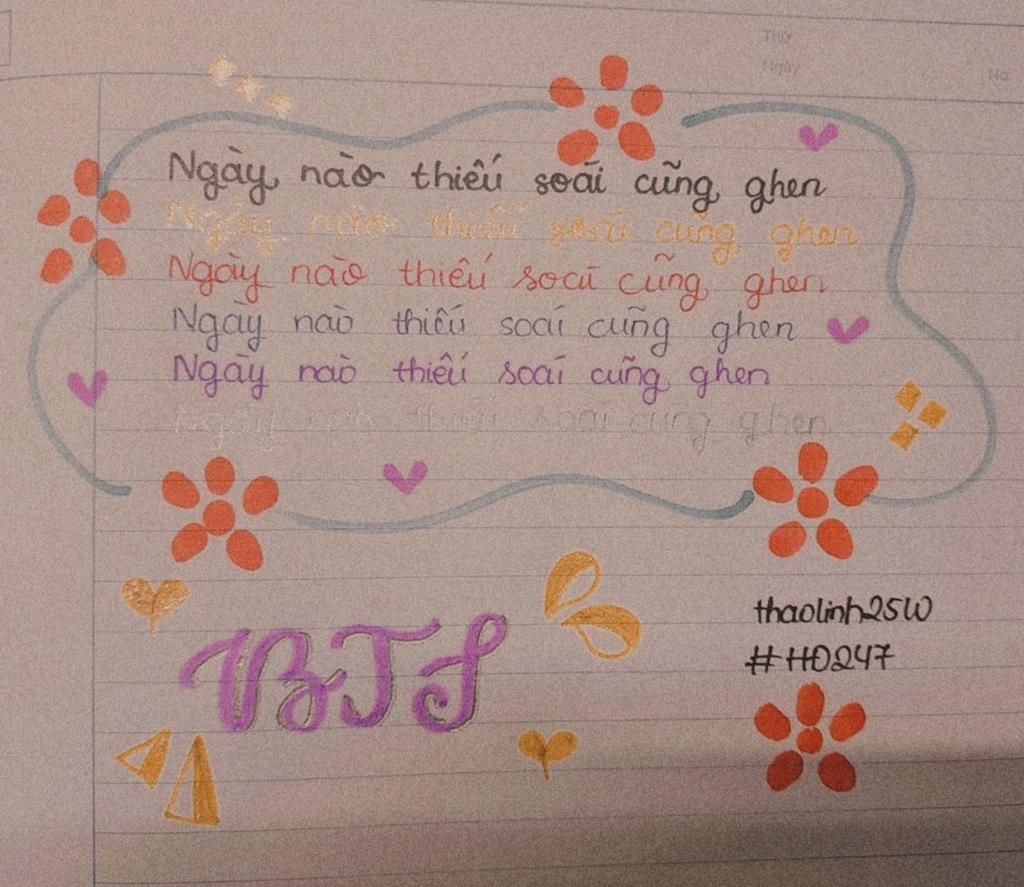 Thứ
Ngày
No
Ngày nào thiếu soái cũng ghen
Ngày nào thiếu soái cũng ghen
Ngày nào thiếu soái cũng ghen
Ngày nào thiếu soái cũng ghen
Ngày nào thiếu soái cũng ghen
Ngày nào thiếu soái cũng ghen
BTS
thaolinh2510
#HD247